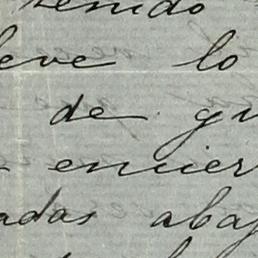 tenido
eve lo
de gu
encier
adas abaj